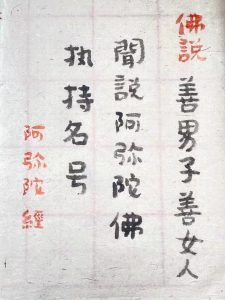 佛説 善男子善女人
聞説阿弥陀佛
执持名号
阿弥陀經